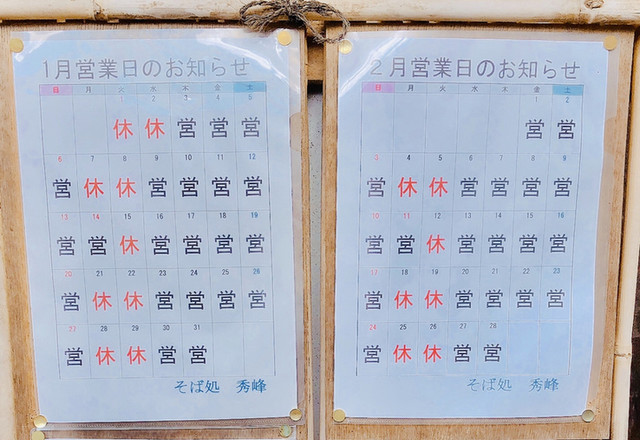 1月営業日のお知らせ
日 月 火 水 木 金 土
1 2 3 4 5
休 休 営 営 営
6 7 8 9 10 11 12
営 休 休 営 営 営 営
13 14 15 16 17 18 19
営 営 休 営 営 営 営
20 21 22 23 24 25 26
営 休 休 営 営 営 営
27 28 29 30 31
営 休 休 営 営
そば処 秀峰
2月営業日のお知らせ
日 月 火 水 木 金 土
1 2
営 営
3 4 5 6 7 8 9
営 休 休 営 営 営 営
10 11 12 13 14 15 16
営 営 休 営 営 営 営
17 18 19 20 21 22 23
営 休 休 営 営 営 営
24 25 26 27 28
営 休 休 営 営
そば処 秀峰